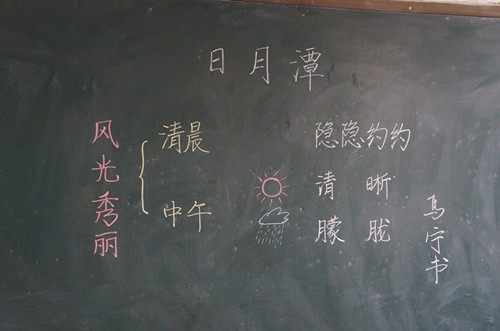 日月潭
风光秀丽
清晨
隐隐约约
中午
清晰
朦胧
马宁书